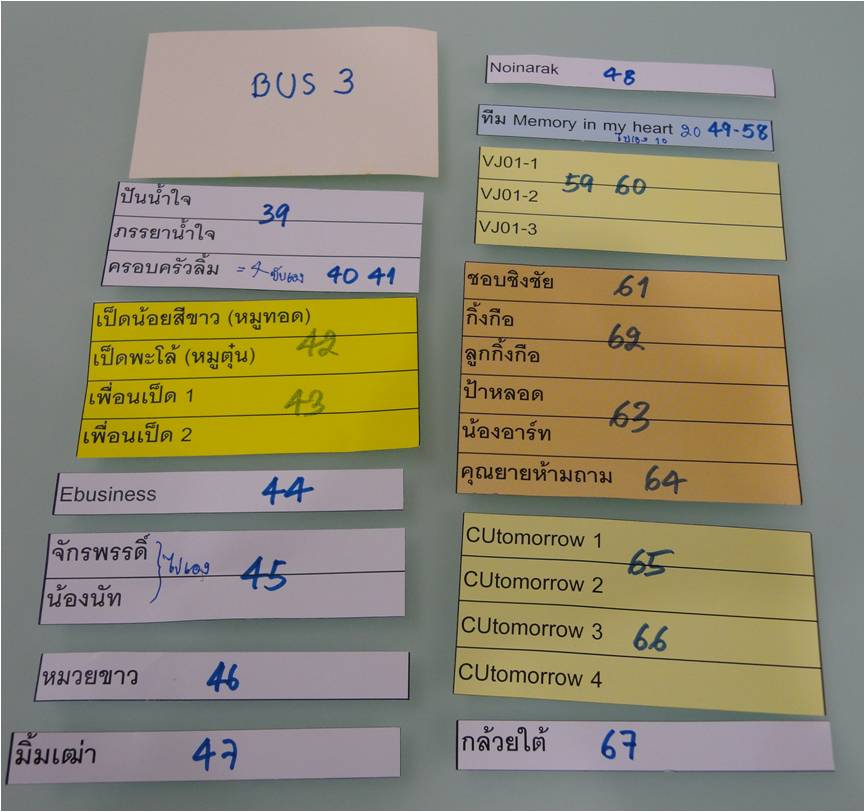 BUS 3
ปันน้ำใจ
39
ภรรยาน้ำใจ
ครอบครัวลิ้ม = 4 ขับเอง 40 41
เป็ดน้อยสีขาว (หมูทอด)
42
เป็ดพะโล้ (หมูตุ๋น)
เพื่อนเป็ด 1
43
เพื่อนเป็ด 2
Ebusiness 44
จักรพรรดิ์
ไปเอง 45
น้องนัท
หมวยขาว 46
มิ้มเฒ่า 47
Noinarak 48
ทีม Memory in my heart 20 49-58
ไปเอง 10
VJ01-1
59 60
VJ01-2
VJ01-3
ชอบซิงชัย 61
กิ้งกือ
62
ลูกกิ้งกือ
ป้าหลอด
63
น้องอาร์ท
คุณยายห้ามถาม 64
CUtomorrow 1
65
CUtomorrow 2
CUtomorrow 3 66
CUtomorrow 4
กล้วยใต้ 67